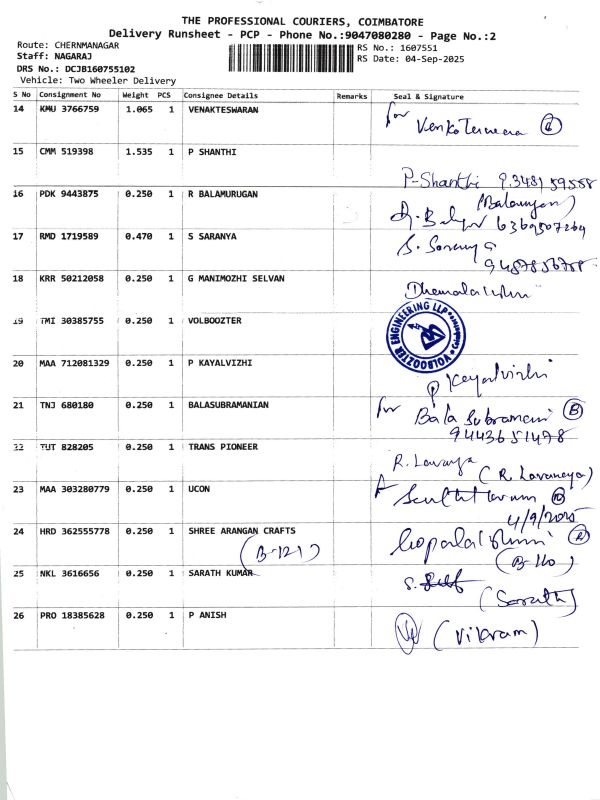 THE PROFESSIONAL COURIERS, COIMBATORE
Delivery Runsheet - PCP - Phone No.:9047080280 - Page No.:2
Route: CHERNMANAGAR
Staff: NAGARAJ
DRS No.: DCJB160755102
Vehicle: Two Wheeler Delivery
RS No.: 1607551
RS Date: 04-Sep-2025
S No Consignment No Weight PCS Consignee Details Remarks Seal & Signature
14 KMU 3766759 1.065 1 VENAKTESWARAN for
15 CMM 519398 1.535 1 P SHANTHI
P-Shanthi
16 PDK 9443875 0.250 1 R BALAMURUGAN
17 RMD 1719589 0.470 1 S SARANYA
18 KRR 50212058 0.250 1 G MANIMOZHI SELVAN
19 TMI 30385755 0.250 1 VOLBOOZTER
VOLBOOZTER ENGINEERING LLP
20 MAA 712081329 0.250 1 P KAYALVIZHI
Kayalvizhi
21 TNJ 680180 0.250 1 BALASUBRAMANIAN for
Bala Subramani B
9443651478
22 TUT 828205 0.250 1 TRANS PIONEER
R. Lavanya (R. Lavaneya)
23 MAA 303280779 0.250 1 UCON
4/9/2025
24 HRD 362555778 0.250 1 SHREE ARANGAN CRAFTS
(B-121)
(B-110)
25 NKL 3616656 0.250 1 SARATH KUMAR
(Sarath)
26 PRO 18385628 0.250 1 P ANISH
(Vikram)